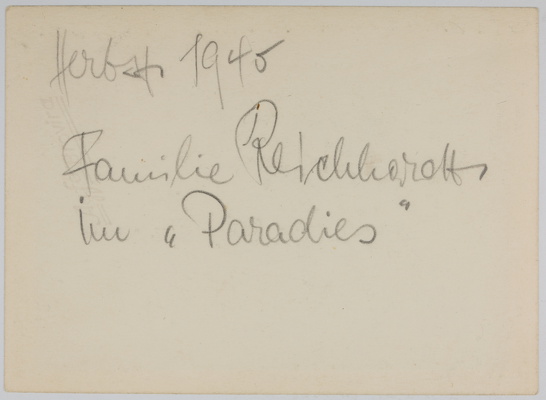 Herbst 1945
Familie Reichhardt
im „Paradies“